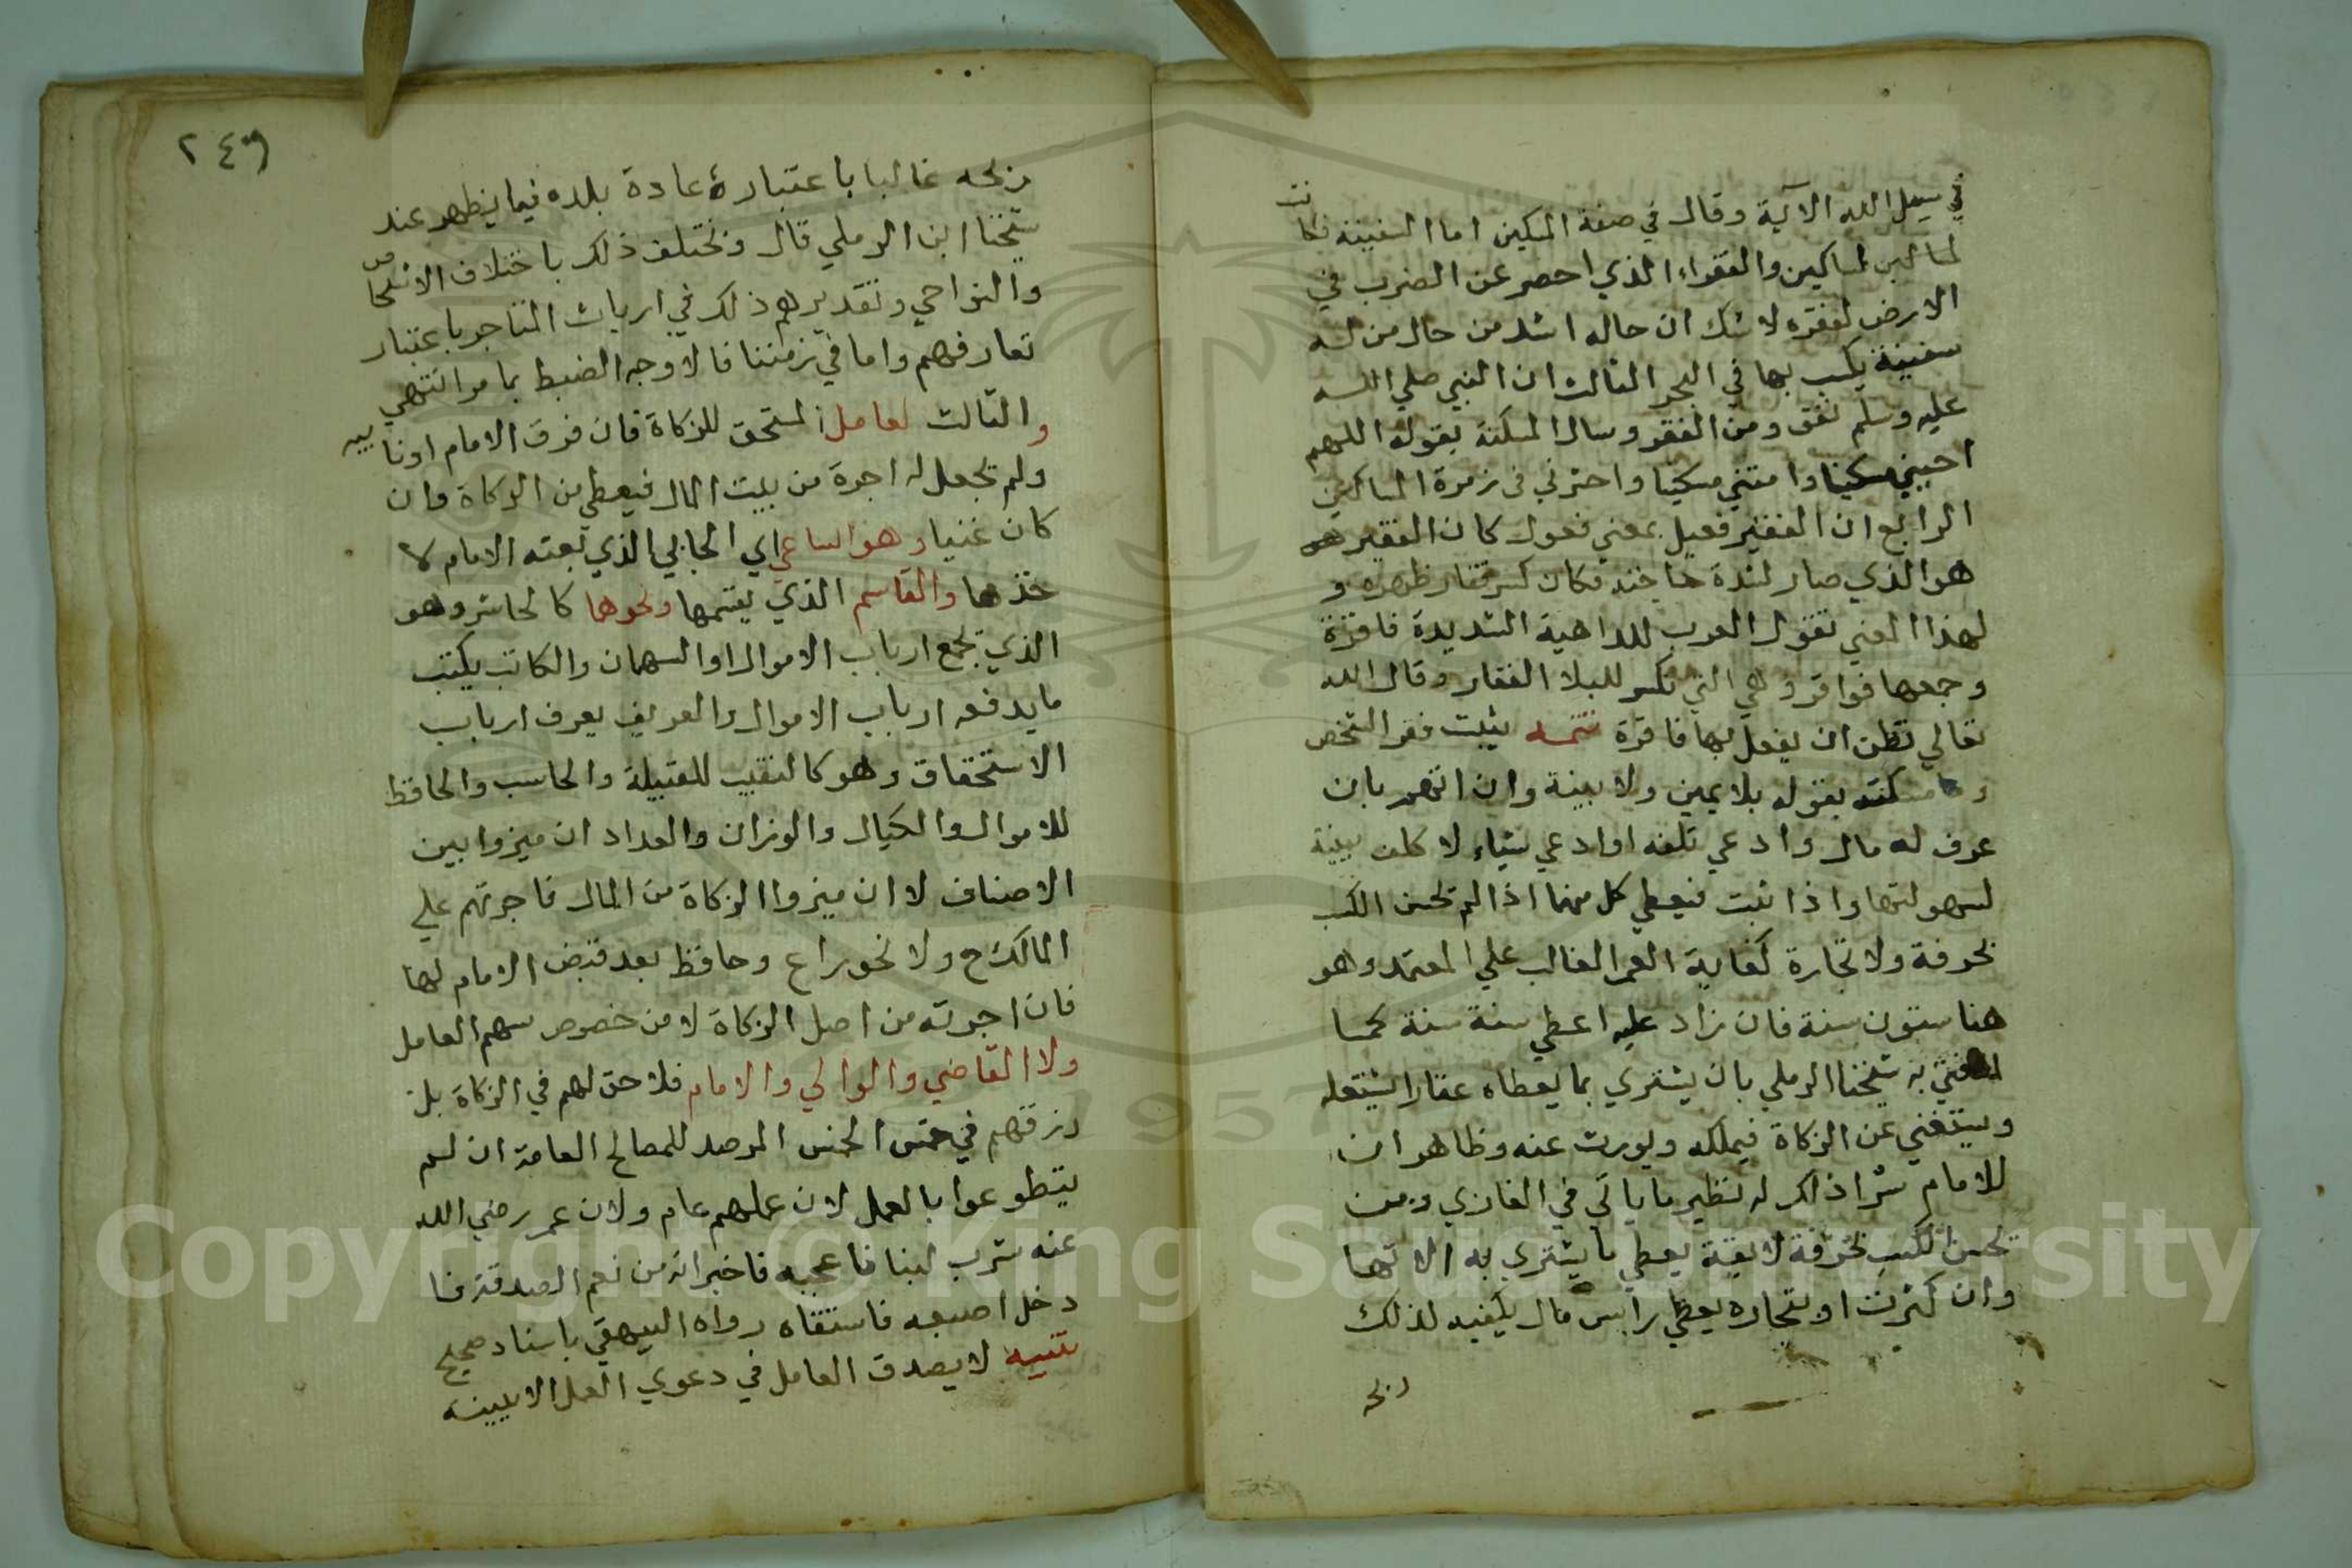 في سبيل الله الآية وقال في صفة المسكين اما السفينة فكانت
لمساكين والفقراء الذي احصر عن الضرب في
الارض لفقره لا شك ان حاله اشد من حال من له
سفينة يكسب بها في البحر الثالث ان النبي صلي الله
عليه وسلم تعوذ من الفقر وسال المسكنة بقوله اللهم
احييني مسكينا وامتني مسكينا واحشرني في زمرة المساكين
الرابع ان الفقير فعيل بمعني فعول كان الفقير
هو الذي صار لشدة حاجته فكان كسر فقار ظهره و
لهذا المعني تقول العرب للداهية الشديدة فاقرة
وجمعها فواقر وهي التي تكسر للبلا الفقار وقال الله
تعالي تظن ان يفعل بها فاقرة تتمه يثبت فقر الشخص
ومسكنته بقوله بلا يمين ولا بينة وان اتهم بان
عرف له مال وادعي تلفه او ادعي شياء لا كلف ببينة
لسهولتها واذا ثبت فيعطي كل منهما اذا لم يحسن الكسب
بحرفة ولا تجارة كفاية العمر الغالب علي المعتمد وهو
هنا ستون سنة فان زاد عليه اعطي سنة سنة كما
افتي به شيخنا الرملي بان يشتري بما يعطاه عقارا يستغله
ويستغني عن الزكاة فيملكه ويورث عنه وظاهر ان
للامام شرا ذلك له نظير ما ياتي في الغازي ومن
يحسن الكسب بحرفة لايقة يعطي ما يشتري به الاتها
وان كثرت او بتجارة يعطي راس مال يكفيه لذلك
ربحه
٢٤٦
ربحه غالبا باعتبار عادة بلده فيما يظهر عند
شيخنا ابن الرملي قال ويختلف ذلك باختلاف الاشخاص
والنواحي وتقديرهم ذلك في ارباب المتاجر باعتبار
تعارفهم واما في زمننا فالاوجه الضبط بما مر انتهي
والثالث لعامل المستحق للزكاة فان فرق الامام او نايبه
ولم يجعل له اجرة من بيت المال فيعطي من الزكاة وان
كان غنيا وهو الساعي اي الجابي الذي بعثه الامام لا
خذها والقاسم الذي يقسمها ونحوها كالحاشر وهو
الذي يجمع ارباب الاموال او السهمان والكاتب يكتب
ما يدفعه ارباب الاموال والعريف يعرف ارباب
الاستحقاق وهو كالنقيب للقبيلة والحاسب والحافظ
للاموال والكيال والوزان والعداد ان ميزوا بين
الاصناف لا ان ميزوا الزكاة من المال فاجرتهم علي
المالك ح ولا نحو راع وحافظ بعد قبض الامام لها
فان اجرته من اصل الزكاة لا من خصوص سهم العامل
ولا القاضي والوالي والامام فلا حق لهم في الزكاة بل
رزقهم في خمس الخمس المرصد للمصالح العامة ان لم
يتطوعوا بالعمل لان عملهم عام ولان عمر رضي الله
عنه شرب لبنا فاعجبه فاخبر انه من نعم الصدقة فا
دخل اصبعه فاستقاه رواه البيهقي باسناد صحيح
تنبيه لا يصدق العامل في دعوي العمل الا ببينة
Copyright © King Saud University
1957